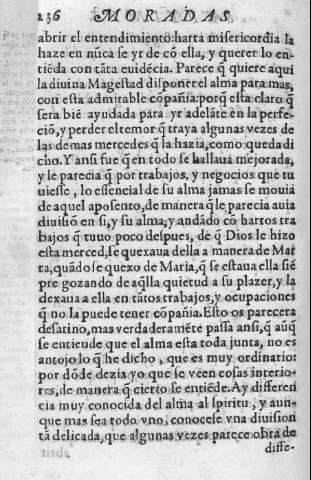 236 MORADAS
abrir el entendimiento: harta misericordia la
haze en nũca se yr de cõ ella, y querer lo en-
tiẽda con tãta euidẽcia. Parece q̃ quiere aqui
la diuina Magestad disponer el alma para mas,
con esta admirable cõpañia: porq̃ esta claro q̃
sera biẽ ayudada para yr adelãte en la perfe-
ciõ, y perder el temor q̃ traya algunas vezes de
las demas mercedes q̃ la hazia, como queda di
cho. Y ansi fue q̃ en todo se hallaua mejorada,
y le parecia q̃ por trabajos, y negocios que tu
uiesse, lo essencial de su alma jamas se mouia
de aquel aposento, de manera q̃ le parecia auia
diuisiõ en si, y su alma; y andãdo cõ hartos tra
bajos q̃ tuuo poco despues, de q̃ Dios le hizo
esta merced, se quexaua della a manera de Mar
ta, quãdo se quexo de Maria, q̃ se estaua ella siẽ
pre gozando de aq̃lla quietud a su plazer, y la
dexaua a ella en tãtos trabajos, y ocupaciones
q̃ no la puede tener cõpañia. Esto os parecera
desatino, mas verdaderamẽte passa ansi, q̃ aũq̃
se entiende que el alma esta toda junta, no es
antojo lo q̃ he dicho, que es muy ordinario:
por dõde dezia yo que se veen cosas interio-
res, de manera q̃ cierto se entiẽde. Ay differen
cia muy conocida del alma al spiritu, y aun-
que mas sea todo vno, conocese vna diuision
tã delicada, que algunas vezes parece obra de
diffe-